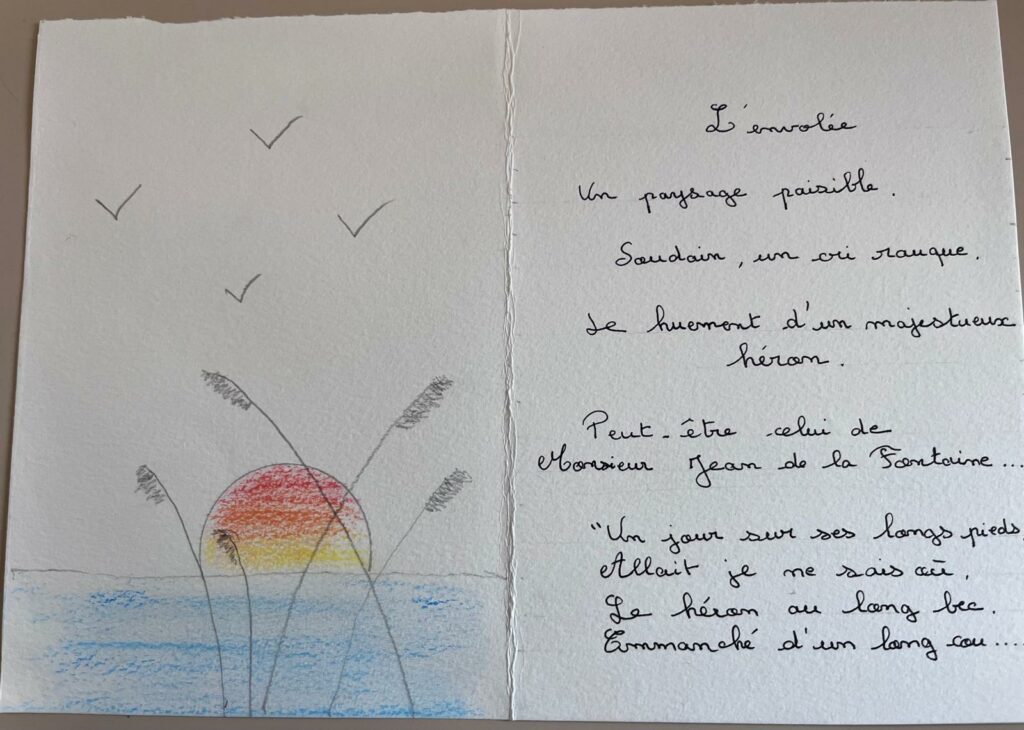 L'envolée
Un paysage paisible.
Soudain, un cri rauque.
Le huement d'un majestueux
héron.
Peut-être celui de
Monsieur Jean de la Fontaine...
"Un jour sur ses longs pieds,
Allait je ne sais où,
Le héron au long bec.
Emmanché d'un long cou....